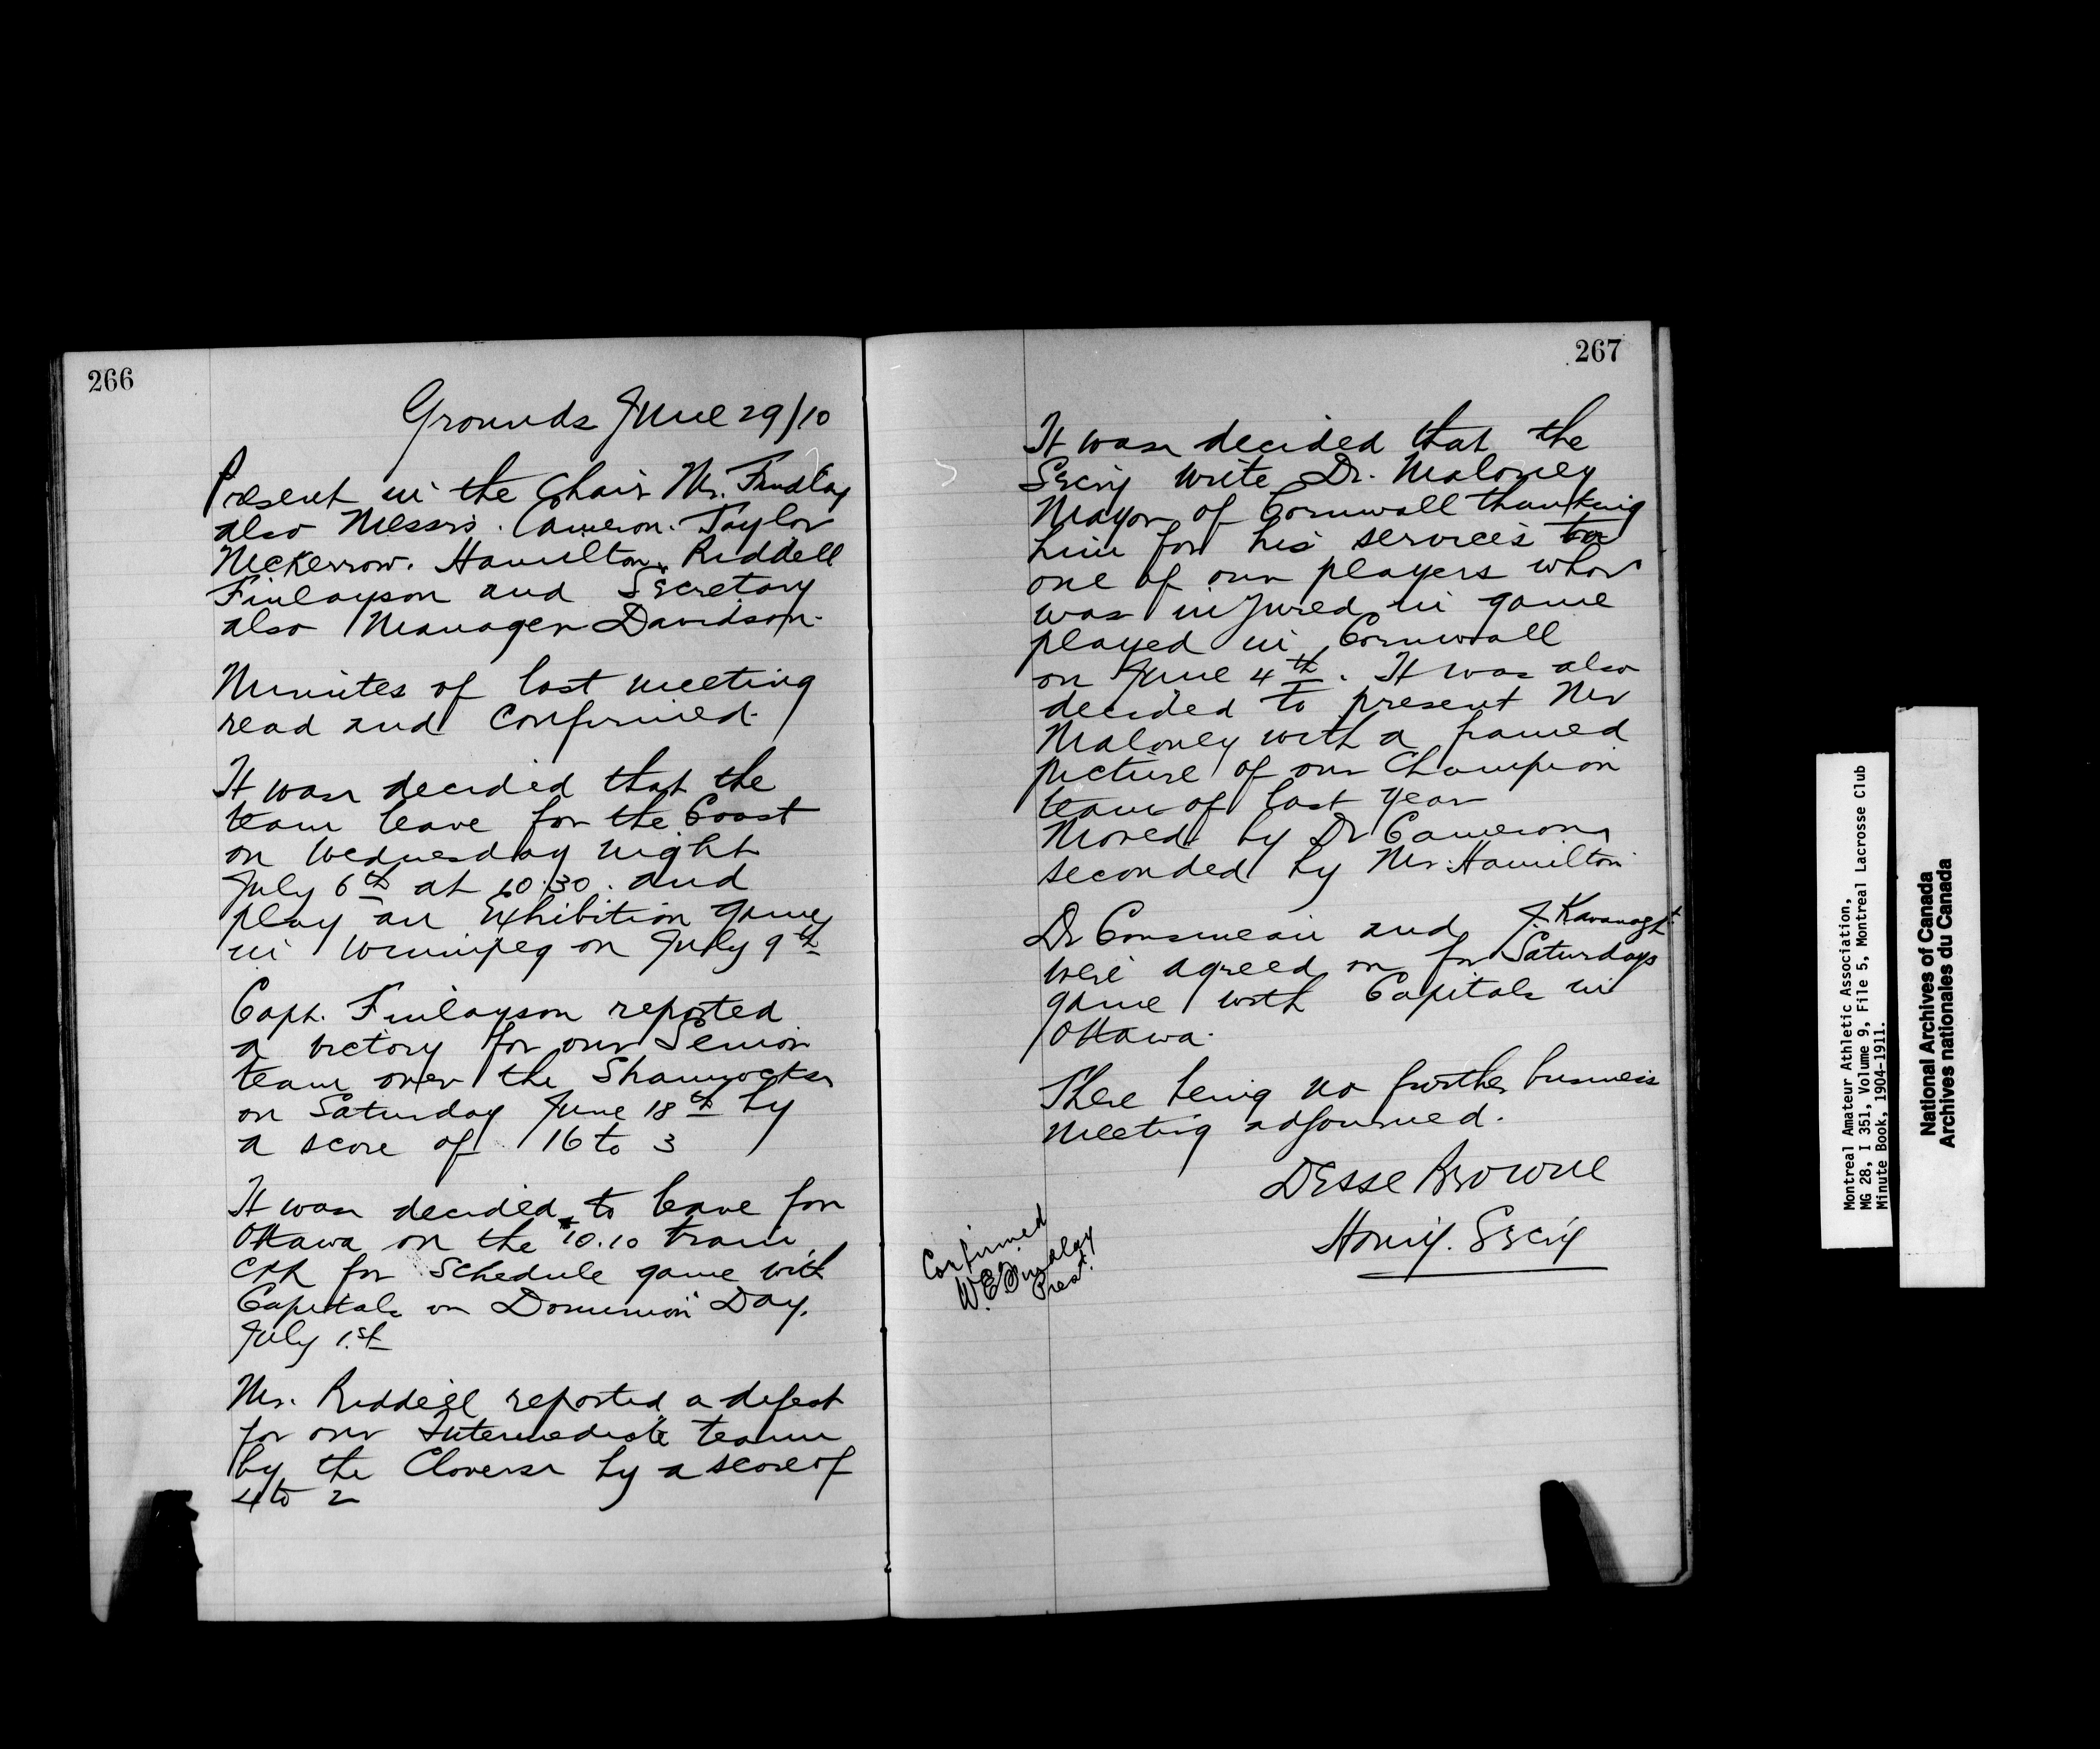 266
Grounds June 29/10
Present in the Chair Mr. Findlay
also Messrs. Cameron. Taylor
McKerrow. Hamilton, Riddell
Finlayson and Secretary
also Manager Davidson.
Minutes of last meeting
read and confirmed.
It was decided that the
team leave for the Coast
on Wednesday night
July 6th at 10.30. and
play an Exhibition game
in Winnipeg on July 9th
Capt. Finlayson reported
a victory for our Senior
team over the Shamrocks
on Saturday June 18th by
a score of 16 to 3
It was decided to leave for
Ottawa on the 10.10 train
CPR for Schedule game with
Capitals on Dominion Day.
July 1.st
Mr. Riddell reported a defeat
for our Intermediate team
by the Clovers by a score of
4 to 2
267
It was decided that the
Secry write Dr. Maloney
Mayor of Cornwall thanking
him for his services to
one of our players who
was injured in game
played in Cornwall
on June 4th. It was also
decided to present Mr
Maloney with a framed
picture of our Champion
team of last year
Moved by Dr Cameron
seconded by Mr. Hamilton
Dr and J. Kavanagh
were agreed on for Saturdays
game with Capitals in
Ottawa.
There being no further business
meeting adjourned.
Desse Browne
Hony. Secry
Confirmed
W.E. Findlay
Prest.
Montreal Amateur Athletic Association,
MG 28, I 351, Volume 9, File 5, Montreal Lacrosse Club
Minute Book, 1904-1911.
National Archives of Canada
Archives nationales du Canada